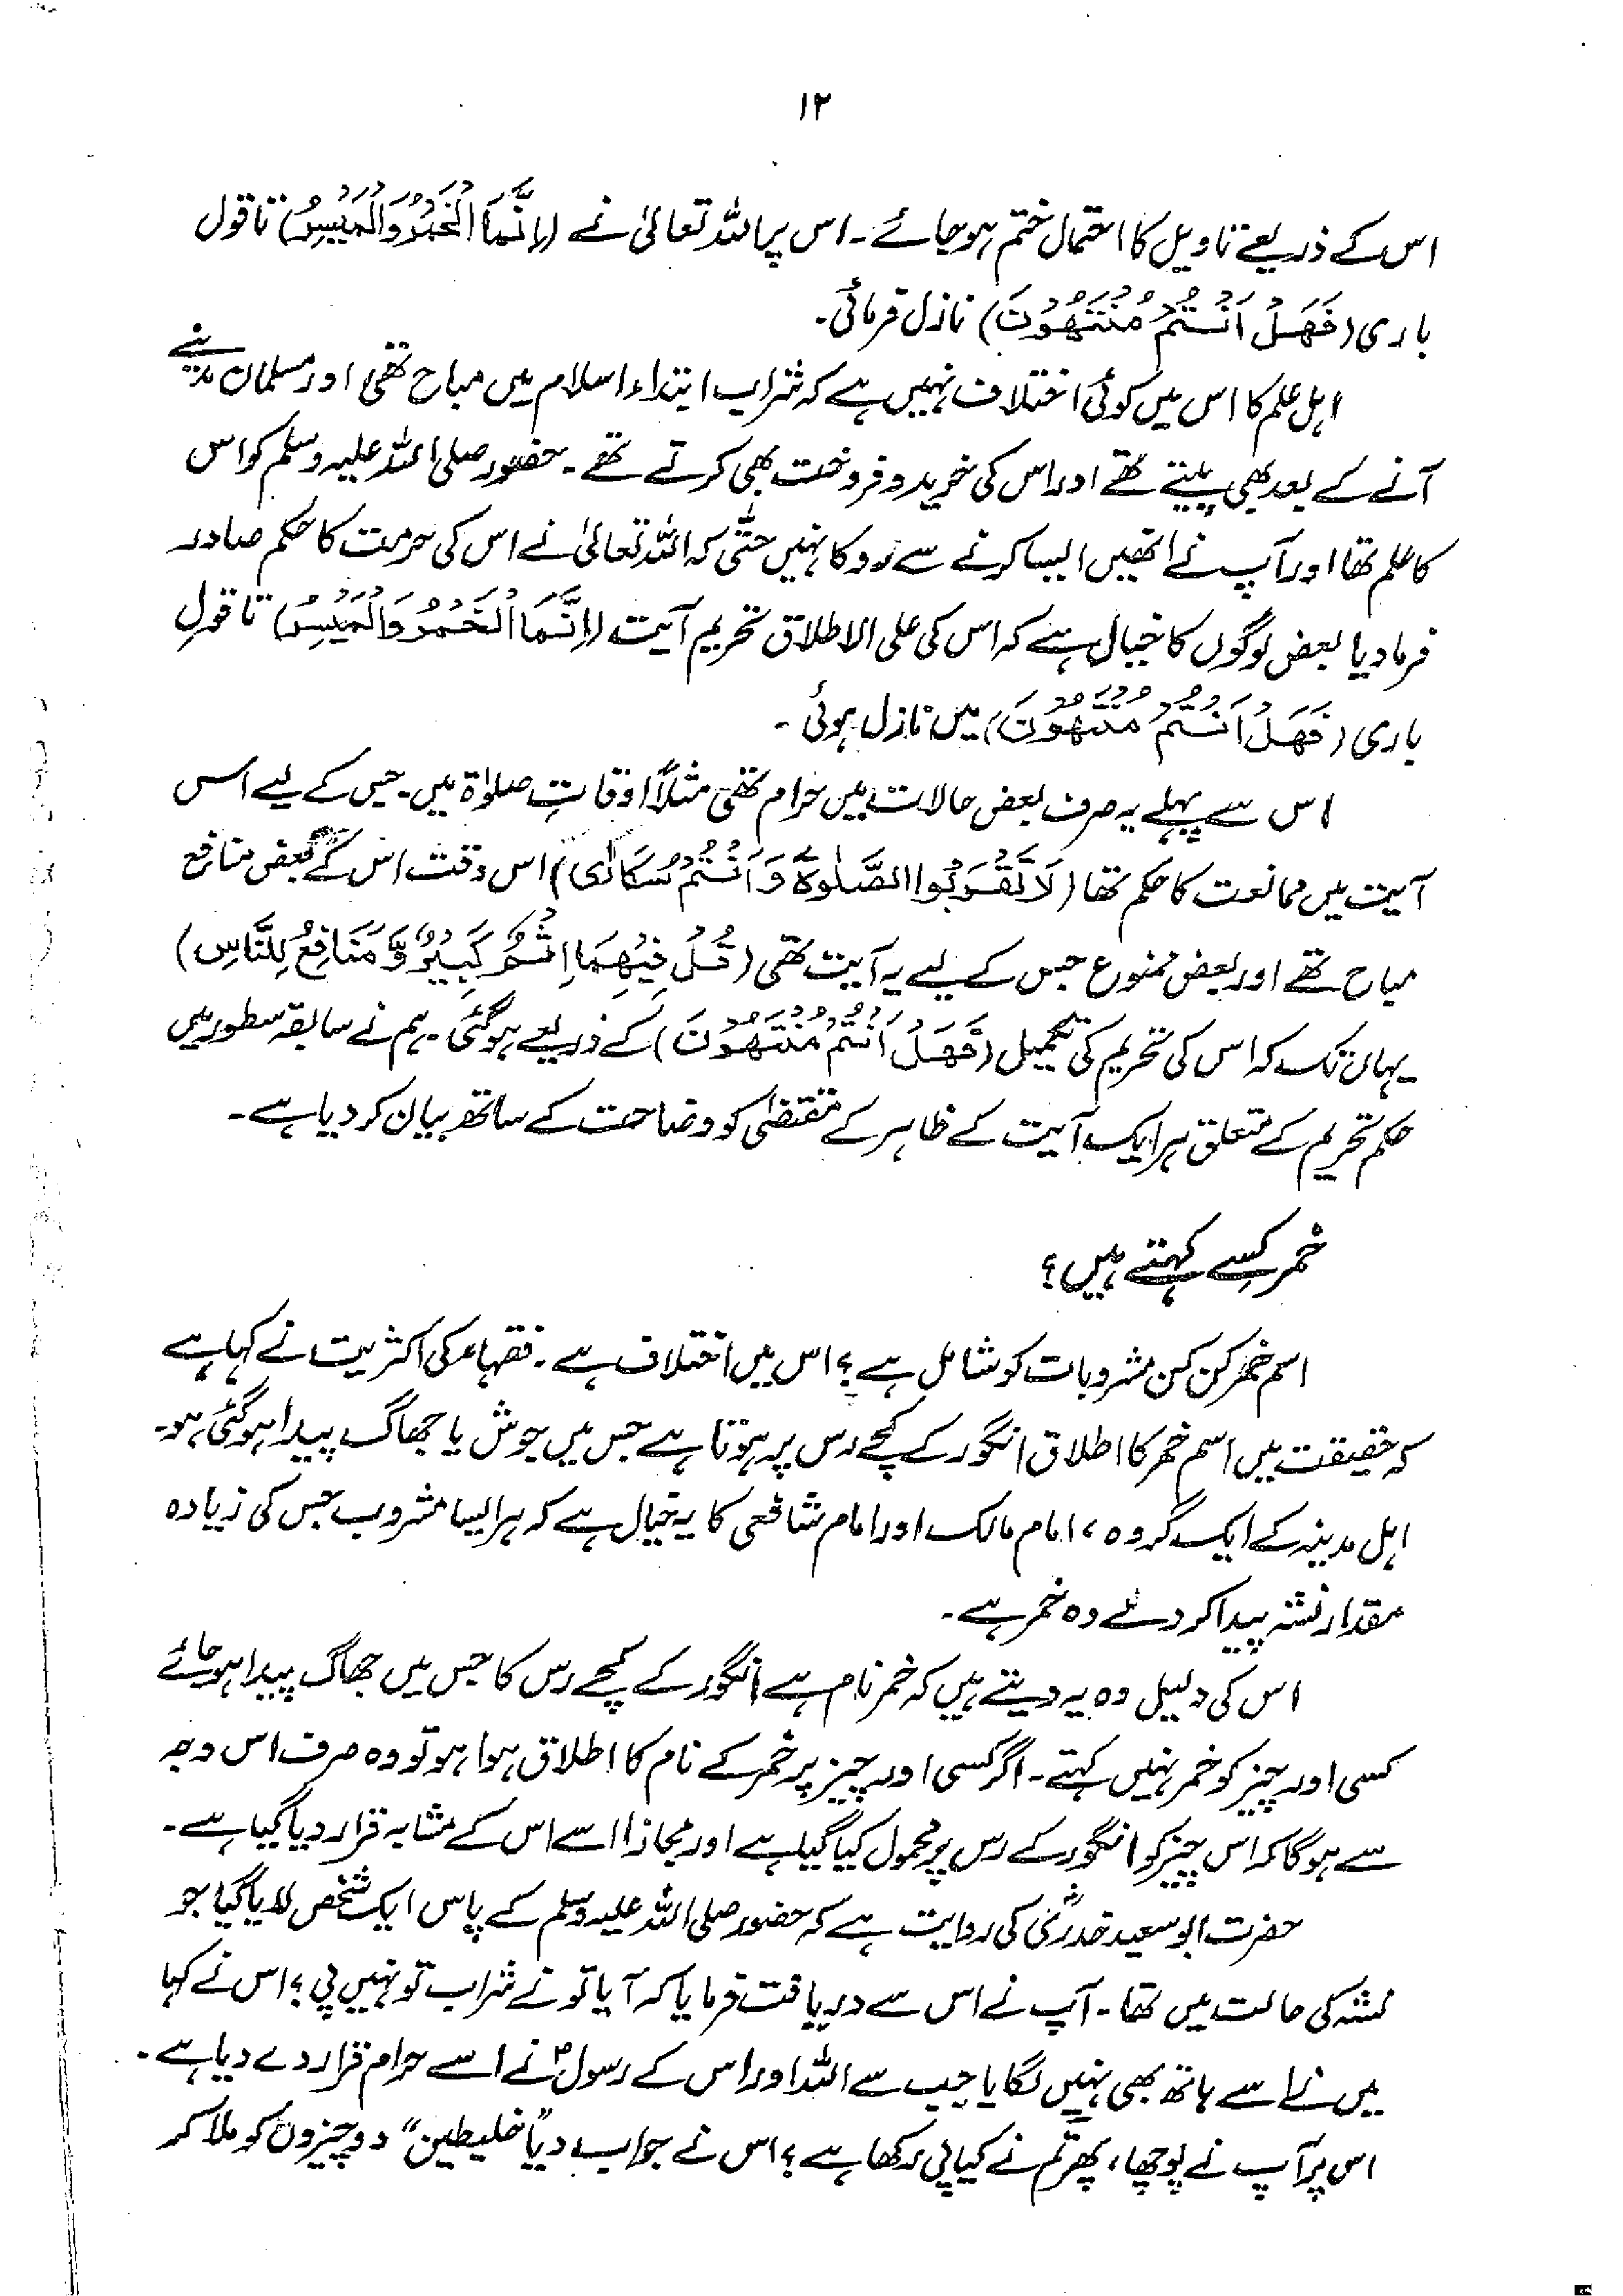 ۱۲
اس کے ذریعے تاویل کا احتمال ختم ہو جائے۔ اس پر اللہ تعالیٰ نے (اِنَّمَا الْخَمْرُ وَالْمَيْسِرُ) تا قول
باری (فَهَلْ اَنْتُمْ مُنْتَهُوْنَ) نازل فرمائی۔
اہل علم کا اس میں کوئی اختلاف نہیں ہے کہ شراب ابتداء اسلام میں مباح تھی اور مسلمان مدینے
آنے کے بعد بھی پیتے تھے اور اس کی خرید و فروخت بھی کرتے تھے۔ حضور صلی اللہ علیہ وسلم کو اس
کا علم تھا اور آپ نے انھیں ایسا کرنے سے روکا نہیں حتّٰی کہ اللہ تعالیٰ نے اس کی حرمت کا حکم صادر
فرما دیا بعض لوگوں کا خیال ہے کہ اس کی علی الاطلاق تحریم آیت (اِنَّمَا الْخَمْرُ وَالْمَيْسِرُ) تا قولِ
باری (فَهَلْ اَنْتُمْ مُنْتَهُوْنَ) میں نازل ہوئی۔
اس سے پہلے یہ صرف بعض حالات میں حرام تھی مثلاً اوقاتِ صلوٰۃ میں۔ جس کے لیے اس
آیت میں ممانعت کا حکم تھا (لَا تَقْرَبُوا الصَّلٰوةَ وَاَنْتُمْ سُكَارٰى) اس وقت اس کے بعض منافع
مباح تھے اور بعض ممنوع جس کے لیے یہ آیت تھی (قُلْ فِيْهِمَا اِثْمٌ كَبِيْرٌ وَّمَنَافِعُ لِلنَّاسِ)
یہاں تک کہ اس کی تحریم کی تکمیل (فَهَلْ اَنْتُمْ مُنْتَهُوْنَ) کے ذریعے ہو گئی۔ ہم نے سابقہ سطور میں
حکم تحریم کے متعلق ہر ایک آیت کے ظاہر کے مقتضیٰ کو وضاحت کے ساتھ بیان کر دیا ہے۔
خمر کسے کہتے ہیں؟
اسم خمر کن کن مشروبات کو شامل ہے؟ اس میں اختلاف ہے۔ فقہاء کی اکثریت نے کہا ہے
کہ حقیقت میں اسم خمر کا اطلاق انگور کے کچے رس پر ہوتا ہے جس میں جوش یا جھاگ پیدا ہو گئی ہو۔
اہل مدینہ کے ایک گروہ، امام مالک اور امام شافعی کا یہ خیال ہے کہ ہر ایسا مشروب جس کی زیادہ
مقدار نشہ پیدا کر دے وہ خمر ہے۔
اس کی دلیل وہ یہ دیتے ہیں کہ خمر نام ہے انگور کے کچے رس کا جس میں جھاگ پیدا ہو جائے
کسی اور چیز کو خمر نہیں کہتے۔ اگر کسی اور چیز پر خمر کے نام کا اطلاق ہوا ہو تو وہ صرف اس وجہ
سے ہوگا کہ اس چیز کو انگور کے رس پر محمول کیا گیا ہے اور مجازاً اسے اس کے مشابہ قرار دیا گیا ہے۔
حضرت ابو سعید خدریؓ کی روایت ہے کہ حضور صلی اللہ علیہ وسلم کے پاس ایک شخص لایا گیا جو
نشہ کی حالت میں تھا۔ آپ نے اس سے دریافت فرمایا کہ آیا تو نے شراب تو نہیں پی؟ اس نے کہا
میں نے اسے ہاتھ بھی نہیں لگایا جب سے اللہ اور اس کے رسولؐ نے اسے حرام قرار دے دیا ہے۔
اس پر آپ نے پوچھا، پھر تم نے کیا پی رکھا ہے؟ اس نے جواب دیا "خلیطین" دو چیزوں کو ملا کر